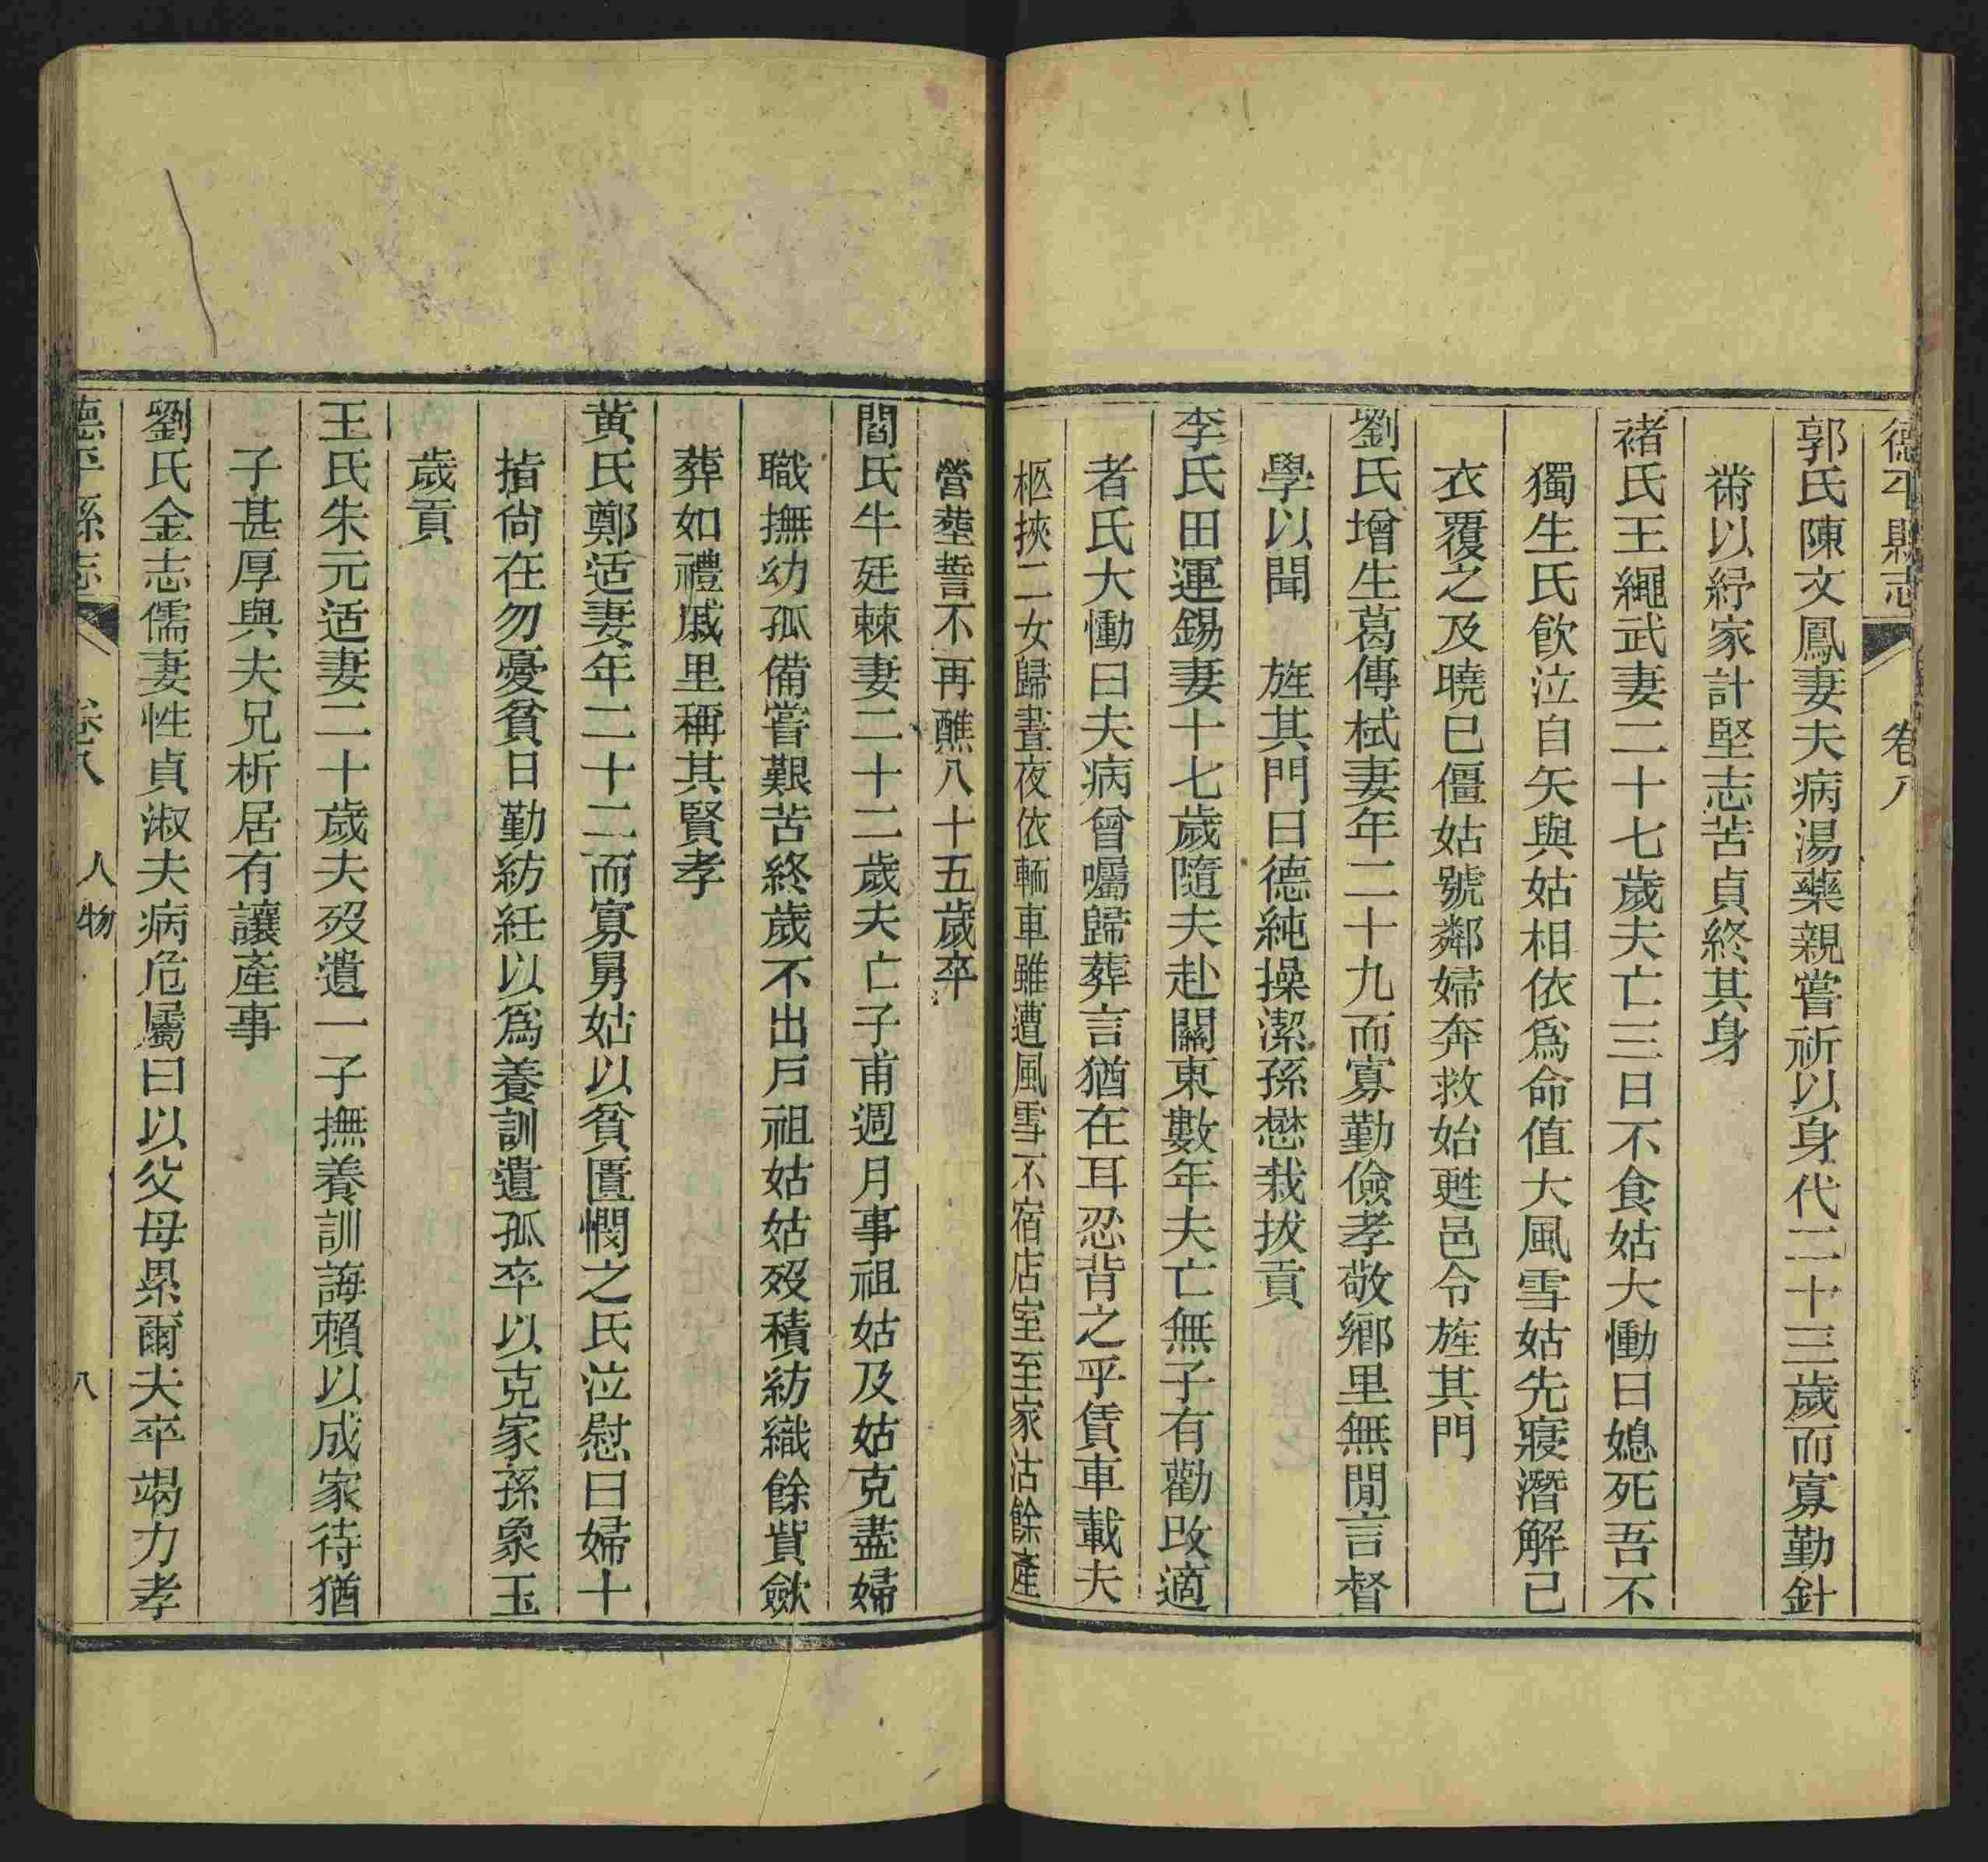 德平縣志 卷八
郭氏陳文鳳妻夫病湯藥親嘗祈以身代二十三歲而寡勤針
黹以紓家計堅志苦貞終其身
褚氏王繩武妻二十七歲夫亡三日不食姑大慟曰媳死吾不
獨生氏飮泣自矢與姑相依爲命值大風雪姑先寢潛解己
衣覆之及曉已僵姑號鄰婦奔救始甦邑令旌其門
劉氏增生葛傳栻妻年二十九而寡勤儉孝敬鄉里無閒言督
學以聞 旌其門曰德純操潔孫懋栽拔貢
李氏田運錫妻十七歲隨夫赴關東數年夫亡無子有勸改適
者氏大慟曰夫病曾囑歸葬言猶在耳忍背之乎賃車載夫
柩挾二女歸晝夜依輀車雖遭風雪不宿店室至家沽餘產
營塟誓不再醮八十五歲卒
閻氏牛廷棘妻二十二歲夫亡子甫週月事祖姑及姑克盡婦
職撫幼孤備嘗艱苦終歲不出戶祖姑姑歿積紡織餘貲歛
葬如禮戚里稱其賢孝
黃氏鄭适妻年二十二而寡舅姑以貧匱憫之氏泣慰曰婦十
指尙在勿憂貧日勤紡紝以爲養訓遺孤卒以克家孫象玉
歲貢
王氏朱元适妻二十歲夫歿遺一子撫養訓誨賴以成家待猶
子甚厚與夫兄析居有讓產事
劉氏金志儒妻性貞淑夫病危屬曰以父母累爾夫卒竭力孝
德平縣志 卷八 人物 八